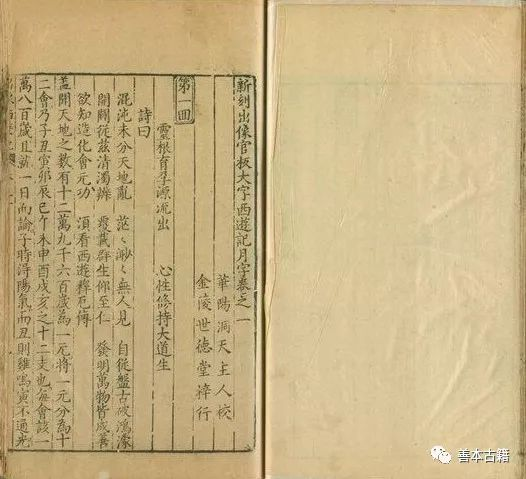 新刻出像官板大字西遊記月字卷之一
華陽洞天主人校
金陵世德堂梓行
第一回
靈根育孕源流出　心性修持大道生
詩曰
混沌未分天地亂　茫々渺々無人見　自從盤古破鴻濛
開闢從茲清濁辨　覆載群生仰至仁　發明萬物皆成善
欲知造化會元功　須看西遊釋厄傳
蓋聞天地之數有十二萬九千六百歲為一元將一元分為十
二會乃子丑寅卯辰巳午未申酉戌亥之十二支也每會該一
萬八百歲且就一日而論子時得陽氣而丑則雞鳴寅不通光
善本古籍